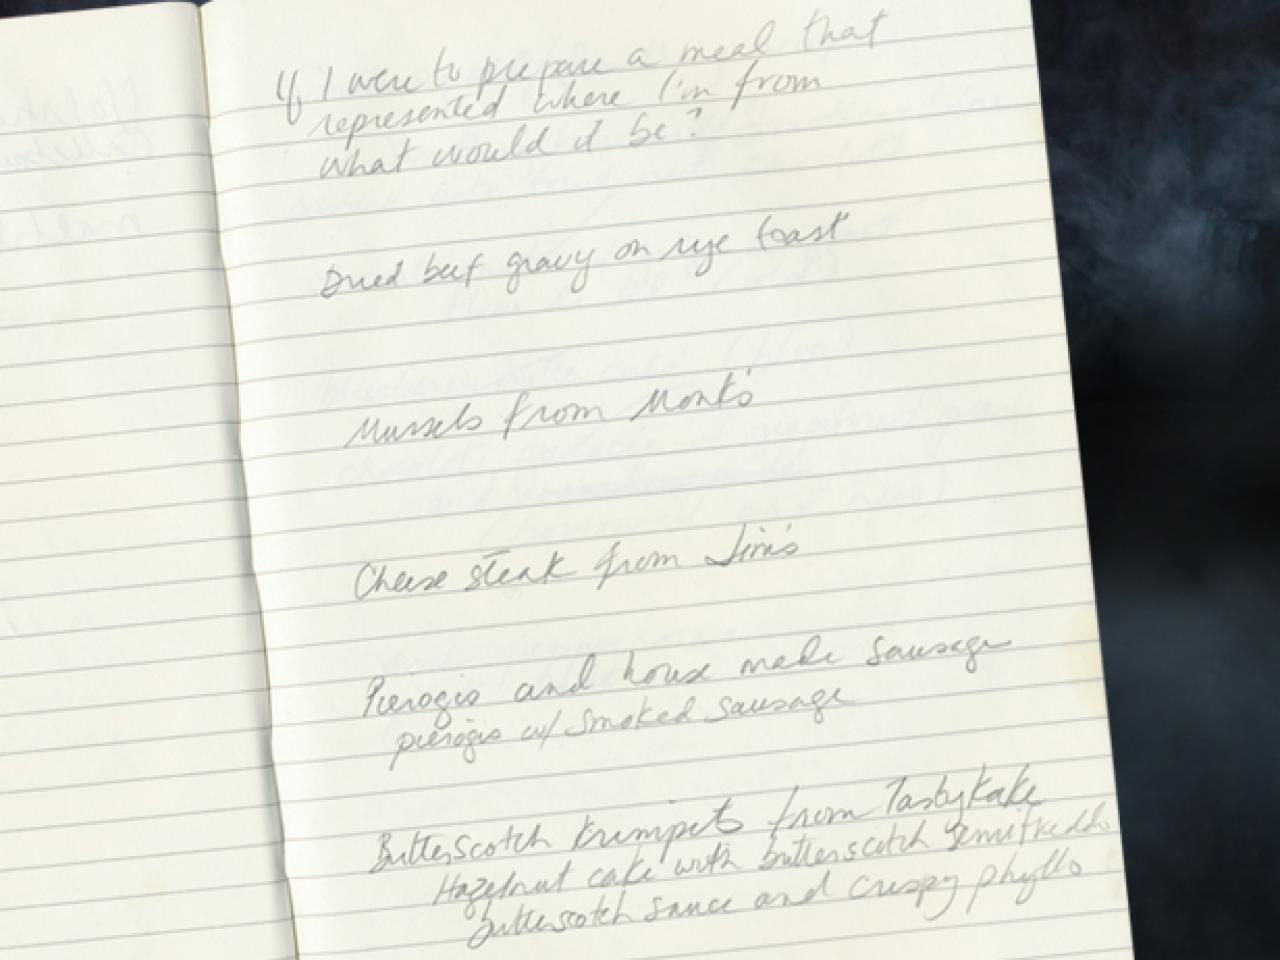 If I were to prepare a meal that
represented where I'm from
what would it be?
Dried beef gravy on rye toast
Mussels from Monk's
Cheese steak from Jim's
Pierogis and house made sausage
pierogis w/ smoked sausage
Butterscotch Krimpets from TastyKake
Hazelnut cake with butterscotch semifreddo
butterscotch sauce and crispy phyllo